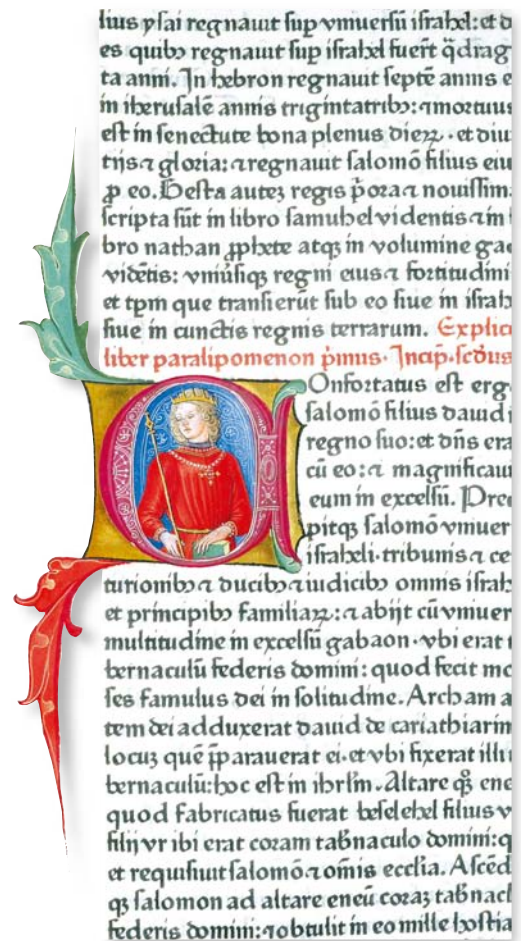 lius ysai regnauit sup vniuersū israhel: et d
es quibꝰ regnauit sup israhel fuert q̄drag
ta anni. In hebron regnauit septē annis e
in iherusalē annis trigintatribꝰ: ⁊ mortuus
est in senectute bona plenus dieꝝ · et diui
tijs ⁊ gloria: ⁊ regnauit salomō filius eiu
ꝓ eo. Gesta auteꝫ regis p̄ora ⁊ nouissim
scripta sūt in libro samuhel videntis ⁊ in
bro nathan ꝓphete atqꝫ in volumine gad
vidētis: vniūsiqꝫ regni eius ⁊ fortitudini
et tpm que transierūt sub eo siue in israh
siue in cunctis regnis terrarum. Explic
liber paralipomenon p̄mus. Incip. scd̄us
Onfortatus est erg
salomō filius dauid i
regno suo: et dn̄s era
cū eo: ⁊ magnificaui
eum in excelsū. Prec
pitqꝫ salomō vniuer
israheli · tribunis ⁊ ce
turionibꝰ ⁊ ducibꝰ ⁊ iudicibꝰ omnis israh
et principibꝰ familiaꝝ: ⁊ abijt cū vniuer
multitudine in excelsū gabaon · vbi erat t
bernaculū federis domini: quod fecit mo
ses famulus dei in solitudine. Archam a
tem dei adduxerat dauid de cariathiarim
locuꝫ quē p̄parauerat ei · et vbi fixerat illi
bernaculū: hoc est in ihrl̄m. Altare qꝫ ene
quod fabricatus fuerat beselehel filius v
filij vr ibi erat coram tab̄naculo domini: q
et requisiuit salomō ⁊ om̄is eccl̄ia. Ascēd
qꝫ salomon ad altare eneū coraꝫ tab̄nacl
federis domini: ⁊ obtulit in eo mille hostia